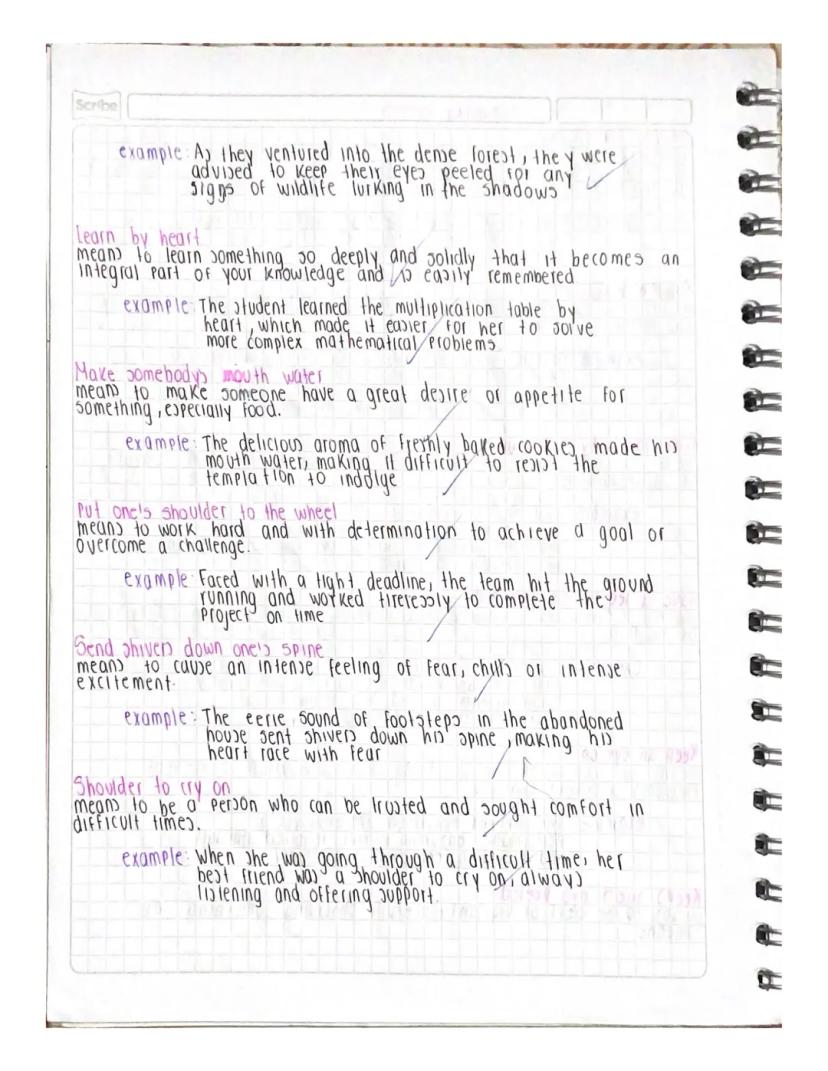 Scribe
example: As they ventured into the dense forest, they were
advised to keep their eyes peeled for any
signs of wildlife lurking in the shadows
Learn by heart
means to learn something so deeply and solidly that it becomes an
integral part of your knowledge and is easily remembered
example: The student learned the multiplication table by
heart, which made it easier for her to solve
more complex mathematical problems
Make somebodys mouth water
means to make someone have a great desire or appetite for
something, especially food.
example: The delicious aroma of freshly baked cookies made his
mouth water, making it difficult to resist the
temptation to indulge
Put one's shoulder to the wheel
means to work hard and with determination to achieve a goal or
overcome a challenge.
example: Faced with a tight deadline, the team hit the ground
running and worked tirelessly to complete the
project on time
Send shivers down one's spine
means to cause an intense feeling of fear, chills or intense
excitement.
example: The eerie sound of footsteps in the abandoned
house sent shivers down his spine, making his
heart race with fear
Shoulder to cry on
means to be a person who can be trusted and sought comfort in
difficult times.
example: When she was going through a difficult time, her
best friend was a shoulder to cry on, always
listening and offering support.